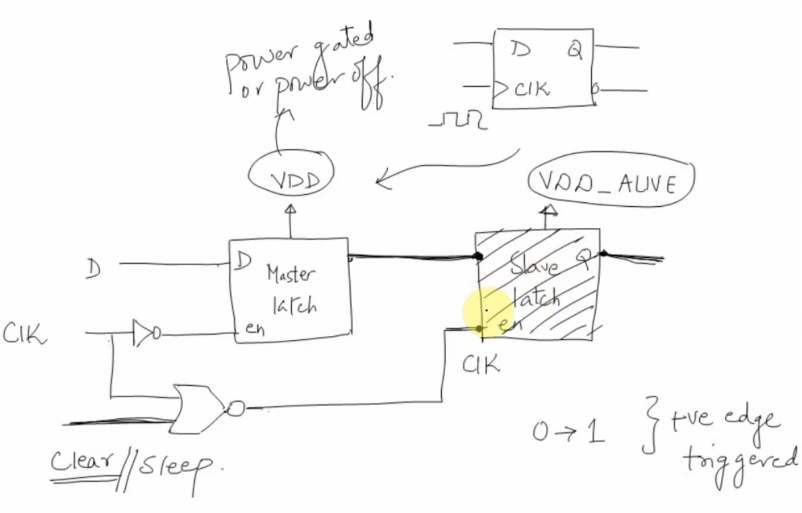 power gated
or power off.
D Q
CIK
VDD
VDD_ALIVE
D
D
Master
latch
en
Slave Q
latch
en
CIK
CIK
Clear//Sleep.
0→1
} +ve edge
triggered